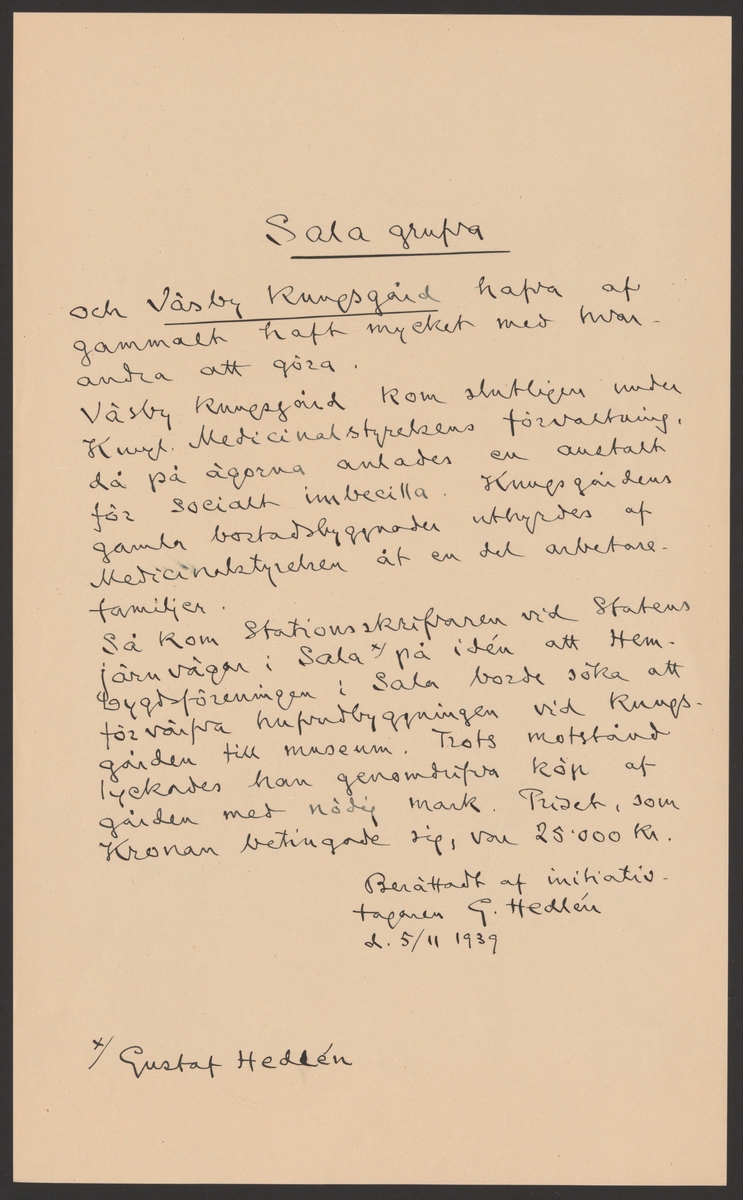 Sala grufva
och Väsby Kungsgård hafva af
gammalt haft mycket med hvar-
andra att göra.
Väsby Kungsgård kom slutligen under
Kungl. Medicinalstyrelsens förvaltning,
då på ägorna anlades en anstalt
för socialt imbecilla. Kungsgårdens
gamla bostadsbyggnader uthyrdes af
Medicinalstyrelsen åt en del arbetare-
familjer.
Så kom Stationsskrifvaren vid Statens
järnvägar i Sala x/ på idén att Hem-
bygdsföreningen i Sala borde söka att
förvärfva hufvudbyggningen vid Kungs-
gården till museum. Trots motstånd
lyckades han genomdrifva köp af
gården med nödig mark. Priset, som
Kronan betingade sig, var 25.000 Kr.
Berättadt af initiativ-
tagaren G. Hedlén
d. 5/11 1939
x/ Gustaf Hedlén